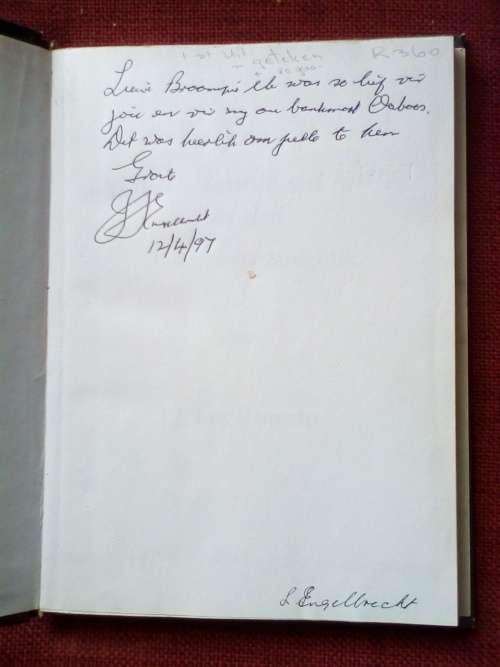 1st uit
geteken
R360
+
Liewe Broompie Ek was so lief vir
jou en vir my ou bankmaat Oaboos.
Dit was heerlik om julle te ken
Groete
12/4/97
L Engelbrecht